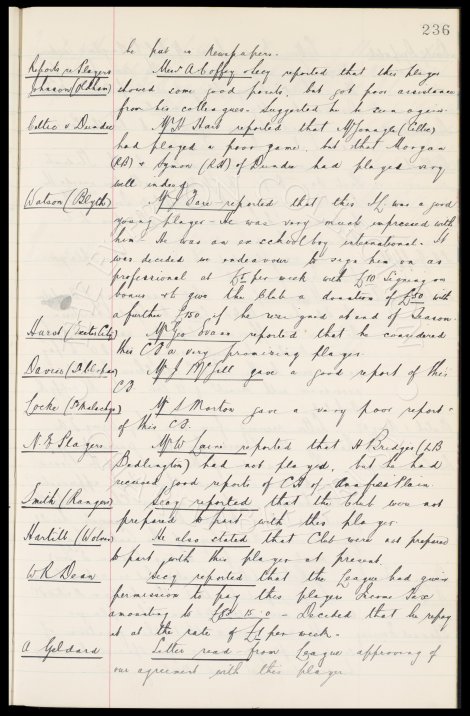 236
be put in Newspapers.
Reports re Players Messrs A Coffey & Secy reported that this player
Johnson (Oldham) showed some good points, but got poor assistance
from his colleagues. Suggested he be seen again.
Celtic v Dundee Mr H Hart reported that McGonagle (Celtic)
had played a poor game, but that Morgan
(RB) & Symon (RH) of Dundee had played very
well indeed
Watson (Blyth) Mr J Fare reported that this IL was a good
young player. He was very much impressed with
him. He was an ex schoolboy international. It
was decided we endeavour to sign him on as
professional at £5 per week with £10 Signing on
bonus, & give the Club a donation of £50 with
a further £150 if he was good at end of Season.
Hurst (Exeter City) Mr Geo Evans reported that he considered
this CB a very promising player.
Davies Mr J McGill gave a good report of this
CB
Locke (St Malachys) Mr S Morton gave a very poor report
of this CB.
N.E. Players Mr W Laine reported that H Bridges (LB
Bedlington) had not played, but he had
received good reports of CH of Annfield Plain
Smith (Rangers) Secy reported that the Club were not
prepared to part with this player
Hartill (Wolves) He also stated that Club were not prepared
to part with this player at present.
W R Dean Secy reported that the League had given
permission to pay this players Income Tax
amounting to 15. 0 - Decided that he repay
it at the rate of £1 per week.
A Geldard Letter read from League approving of
our agreement with this player